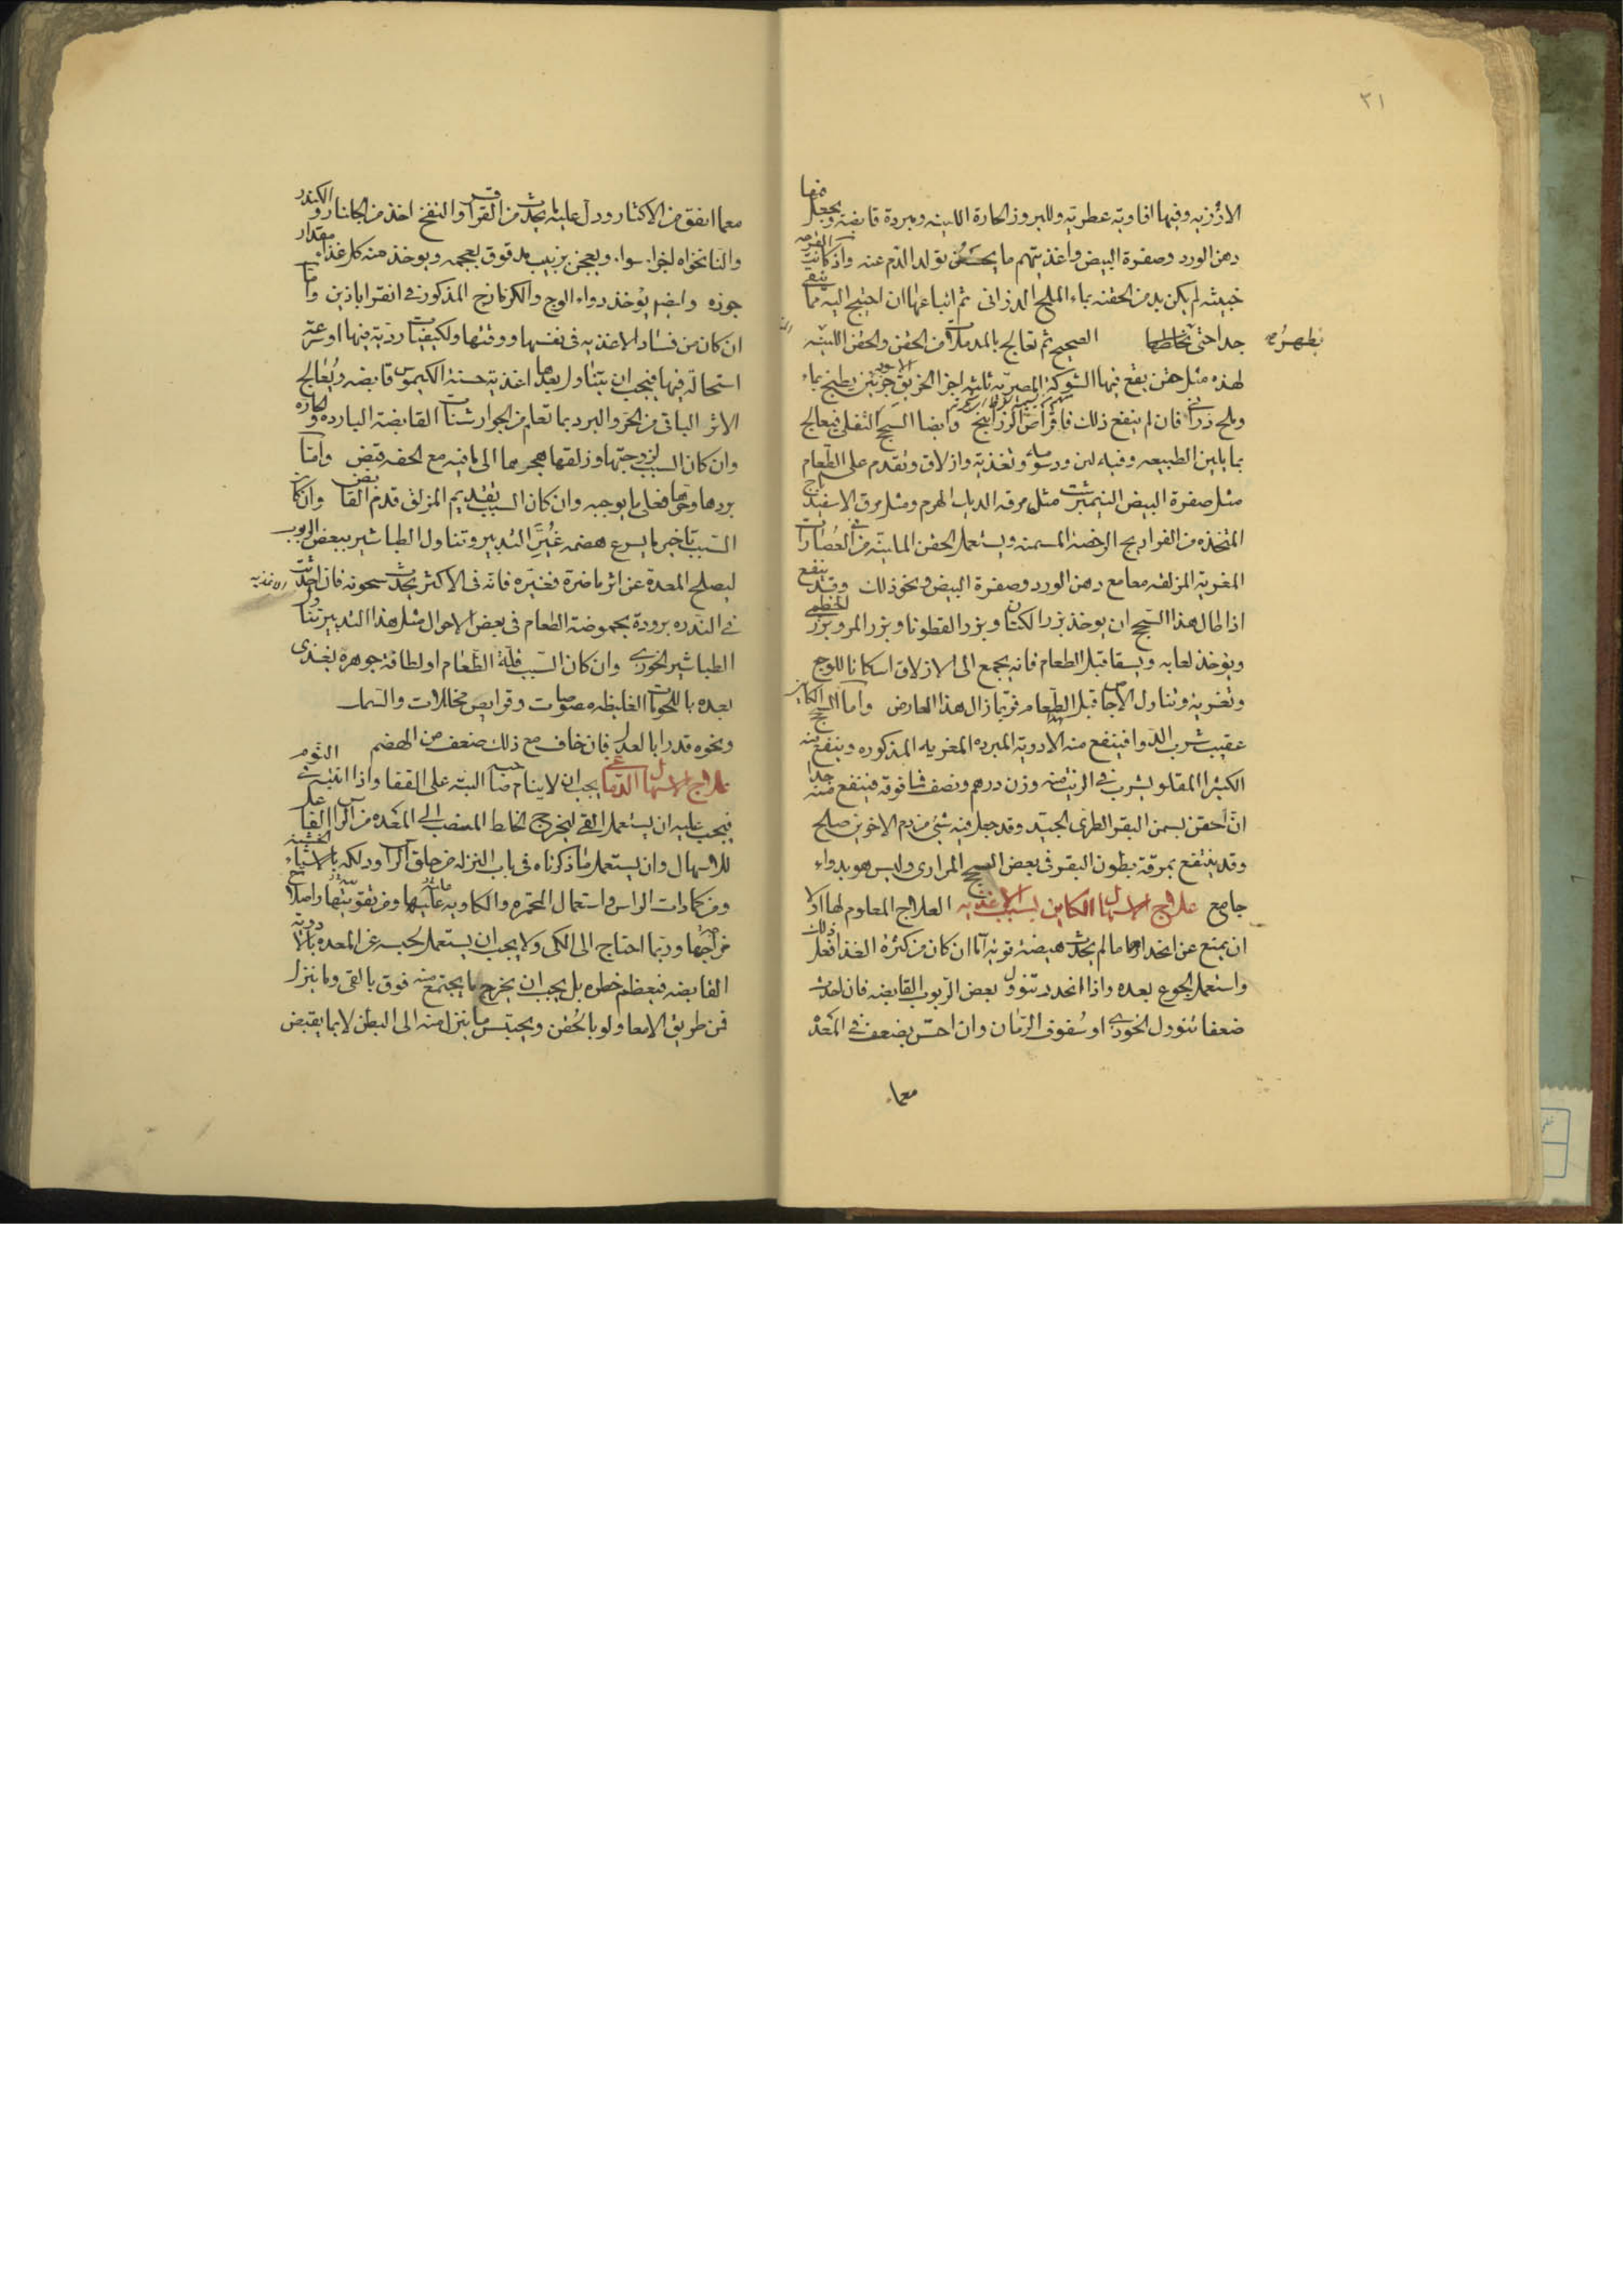 ٣١
الارززيه وفيها افاويه عطريه وللبروز الحارة اللينه ومبردة قابضه ويجعل فيها
دهن الورد وصفرة البيض واغذيتهم ما يحسن تولد الدم عنه واذ كانت القرحه
خبيثه لم يكن بد من الحقنه بماء الملح الدراني ثم اتباعها ان احتيج اليه مما ينقى
جدا حتى تخالطها الصحيح ثم تعالج بالمدملات من الحقن والحقن اللينه
يظهر
لهذه مثل حقن يقع فيها الشوكة المصريه ثلثه اجزا الخربق الاسود جزئين يطبخ بماء
وملح دراني فان لم ينفع ذلك فاقراص الزرانيخ وايضا السحج الثفلى فيعالج
بما يلين الطبيعه وفيه لين ودسومة وتغذية وازلاق ويقدم على الطعام
مثل صفرة البيض النيمبرشت مثل مرقه الديك الهرم ومثل مرق الاسفيدباج
المتخذه من الفراريج الرخصة المسمنه ويستعمل الحقن الماينه من العصارات
المغرية المزلقه معا مع دهن الورد وصفرة البيض ونحو ذلك وقد ينفع
اذا طال هذا السحج ان يوخذ بزر الكتان وبزر القطونا وبزر المرو وبزر الخطمى
ويؤخذ لعابه ويسقا قبل الطعام فانه يجمع الى الازلاق اسكانا للوجع
وتغرية وتناول الاجاص قبل الطعام فربما زال هذا العارض واما السحج الكاين
عقيب شرب الدوا فينفع منه الادوية المبرده المغريه المذكوره وينفع منه
الكثيرا المقلو يشرب في الزيت منه وزن درهم ونصف فما فوقه فينفع منه جدا
ان احقن بسمن البقر الطرى الجيد وقد جعل فيه شئ من دم الاخوين صلح
وقد ينتفع بمرقة بطون البقر فى بعض السحج المرارى وليس هو بدواء
جامع علاج الاسهال الكاين بسبب الاغذيه العلاج المعلوم لها اولا
ان يمنع عن انحدارها ما لم يحدث هيضة قويه اما ان كان من كثرة الغذا فعل ذلك
واستعمل الجوع بعده واذا انحدر تنوول بعض الربوب القابضه فان احدث
ضعفا تنوول الخوزى او سفوف الرمان وان احس بضعف في المعدة
معما
معما اتفق من الاكثار ودل عليه ما يحدث من القراقر والنفخ اخذ من الجلنار والكندر
والنانخواه اجزا سواء ويعجن بزبيب مدقوق بعجمه ويوخذ منه كل غداة مقدار
جوزه وايضا يؤخذ دواء الوج والكزمازج المذكور في القراباذين واما
ان كان من فساد الاغذيه فى نفسها ووقتها ولكيفيات ردية فيها او سرعة
استحالة فيها فيجب ان يتناول بعدها اغذية حسنة الكيموس قابضه ويعالج
الاثر الباقى من الحر والبرد بما تعلم من الجوارشنات القابضة البارده والحاره
وان كان السبب لزوجتها وزلقها هجر هما الى ما فيه مع الخفه قبض واما
بردها وحرها فعل ما يوجبه وان كان السبب تقديم المزلق قدم القابض وان كان
السبب تاخير ما يسرع هضمه غير التدبير وتناول الطباشير ببعض الربوب
ليصلح المعدة عن اثر ما ضرة فغيره فانه فى الاكثر يحدث سخونه فان احدثت
الاغذيه
في الندره برودة بحموضة الطعام فى بعض الاحوال مثل هذا التدبير تناول
الطباشير الخوزى وان كان السبب قلة الطعام او لطافة جوهره يغتذى
بعده باللحومات الغليظه مصوصات وقرايص مخللات والسمك
ونحوه قدرا بالعدل فان خاف مع ذلك ضعف من الهضم
علاج الاسهال الدماغى يجب ان لا ينام صاحبه البته على القفا واذا انتبه من النوم
فيجب عليه ان يستعمل القى ليخرج الخلط المنصب الى المعده من الراس الفاعل
للاسهال وان يستعمل ما ذكرناه فى باب النزله من حلق الراس ودلكه بالاشياء الخشنه
ومن كمادات الراس واستعمال المحمره والكاويه عليها ومن تقويتها واصلاح
مزاجها وربما احتاج الى الكى ولا يجب ان يستعمل لحبسه عن المعده بالادويه
القابضه فيعظم خطره بل يجب ان يخرج ما يجتمع منه فوق بالقى وما ينزل
فمن طريق الامعا ولو بالحقن ويحتبس ما ينزل منه الى البطن لا بما يقبض